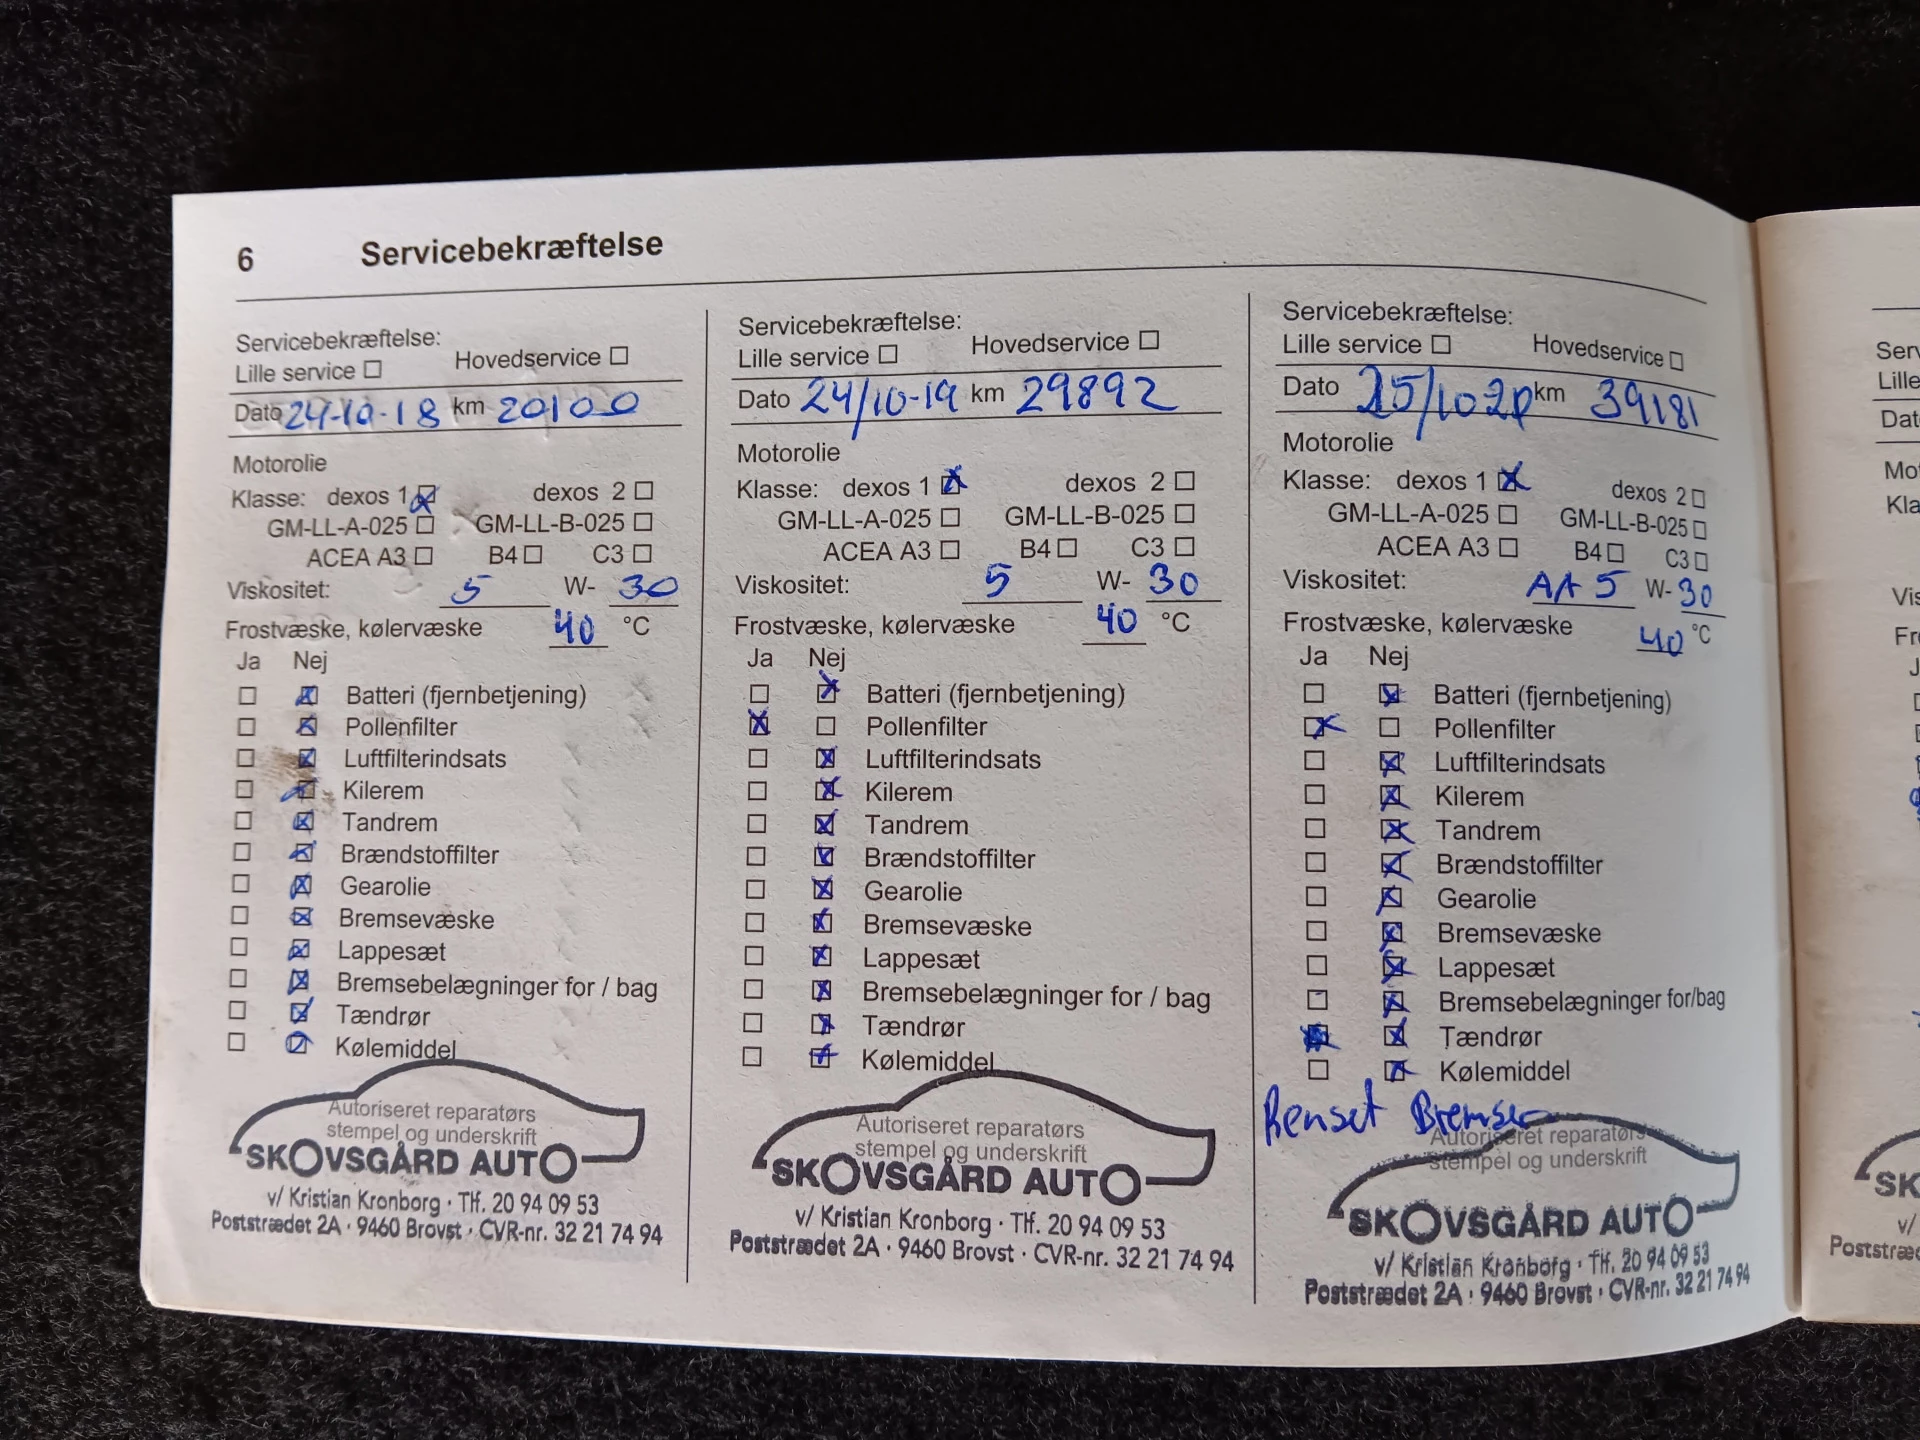 6 Servicebekræftelse
Servicebekræftelse:
Lille service ☐ Hovedservice ☐
Dato 24-10-18 km 20100
Motorolie
Klasse: dexos 1 ☒ dexos 2 ☐
GM-LL-A-025 ☐ GM-LL-B-025 ☐
ACEA A3 ☐ B4 ☐ C3 ☐
Viskositet: 5 W- 30
Frostvæske, kølervæske 40 °C
Ja Nej
☐ ☒ Batteri (fjernbetjening)
☐ ☒ Pollenfilter
☐ ☒ Luftfilterindsats
☐ ☒ Kilerem
☐ ☒ Tandrem
☐ ☒ Brændstoffilter
☐ ☒ Gearolie
☐ ☒ Bremsevæske
☐ ☒ Lappesæt
☐ ☒ Bremsebelægninger for / bag
☐ ☒ Tændrør
☐ ☒ Kølemiddel
Autoriseret reparatørs
stempel og underskrift
SKOVSGÅRD AUTO
v/ Kristian Kronborg · Tlf. 20 94 09 53
Poststrædet 2A · 9460 Brovst · CVR-nr. 32 21 74 94
Servicebekræftelse:
Lille service ☐ Hovedservice ☐
Dato 24/10-19 km 29892
Motorolie
Klasse: dexos 1 ☒ dexos 2 ☐
GM-LL-A-025 ☐ GM-LL-B-025 ☐
ACEA A3 ☐ B4 ☐ C3 ☐
Viskositet: 5 W- 30
Frostvæske, kølervæske 40 °C
Ja Nej
☐ ☒ Batteri (fjernbetjening)
☒ ☐ Pollenfilter
☐ ☒ Luftfilterindsats
☐ ☒ Kilerem
☐ ☒ Tandrem
☐ ☒ Brændstoffilter
☐ ☒ Gearolie
☐ ☒ Bremsevæske
☐ ☒ Lappesæt
☐ ☒ Bremsebelægninger for / bag
☐ ☒ Tændrør
☐ ☒ Kølemiddel
Autoriseret reparatørs
stempel og underskrift
SKOVSGÅRD AUTO
v/ Kristian Kronborg · Tlf. 20 94 09 53
Poststrædet 2A · 9460 Brovst · CVR-nr. 32 21 74 94
Servicebekræftelse:
Lille service ☐ Hovedservice ☐
Dato 25/10 20 km 39181
Motorolie
Klasse: dexos 1 ☒ dexos 2 ☐
GM-LL-A-025 ☐ GM-LL-B-025 ☐
ACEA A3 ☐ B4 ☐ C3 ☐
Viskositet: 5 W- 30
Frostvæske, kølervæske 40 °C
Ja Nej
☐ ☒ Batteri (fjernbetjening)
☒ ☐ Pollenfilter
☐ ☒ Luftfilterindsats
☐ ☒ Kilerem
☐ ☒ Tandrem
☐ ☒ Brændstoffilter
☐ ☒ Gearolie
☐ ☒ Bremsevæske
☐ ☒ Lappesæt
☐ ☒ Bremsebelægninger for/bag
☒ ☒ Tændrør
☐ ☒ Kølemiddel
Renset Bremser
Autoriseret reparatørs
stempel og underskrift
SKOVSGÅRD AUTO
v/ Kristian Kronborg · Tlf. 20 94 09 53
Poststrædet 2A · 9460 Brovst · CVR-nr. 32 21 74 94
Lille